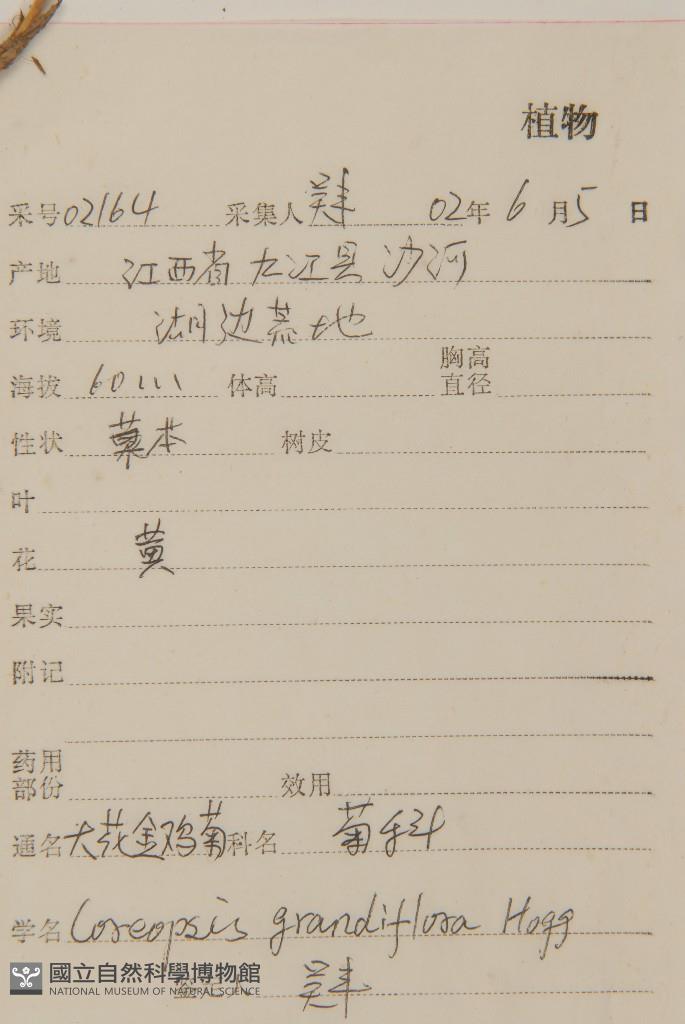 植物
采号 02164 采集人 吴丰 02年 6月5日
产地 江西省九江县沙河
环境 湖边荒地
海拔 60m 体高 胸高直径
性状 草本 树皮
叶
花 黄
果实
附记
药用部份 效用
通名 大花金鸡菊 科名 菊科
学名 Coreopsis grandiflora Hogg
鉴定人 吴丰
國立自然科學博物館
NATIONAL MUSEUM OF NATURAL SCIENCE